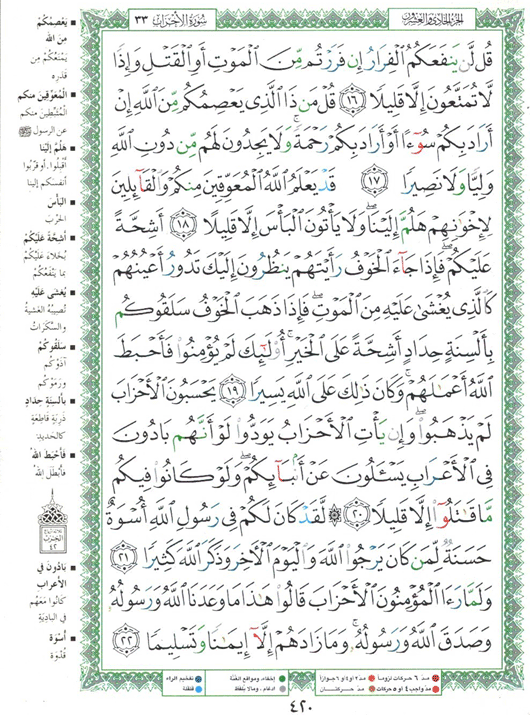 الجزء الحادي والعشرون
سُورَةُ الأَحْزَاب ٣٣
قُل لَّن يَنفَعَكُمُ ٱلْفِرَارُ إِن فَرَرْتُم مِّنَ ٱلْمَوْتِ أَوِ ٱلْقَتْلِ وَإِذًا
لَّا تُمَتَّعُونَ إِلَّا قَلِيلًا ١٦ قُلْ مَن ذَا ٱلَّذِى يَعْصِمُكُم مِّنَ ٱللَّهِ إِنْ
أَرَادَ بِكُمْ سُوٓءًا أَوْ أَرَادَ بِكُمْ رَحْمَةً ۚ وَلَا يَجِدُونَ لَهُم مِّن دُونِ ٱللَّهِ
وَلِيًّا وَلَا نَصِيرًا ١٧ قَدْ يَعْلَمُ ٱللَّهُ ٱلْمُعَوِّقِينَ مِنكُمْ وَٱلْقَآئِلِينَ
لِإِخْوَٰنِهِمْ هَلُمَّ إِلَيْنَا ۖ وَلَا يَأْتُونَ ٱلْبَأْسَ إِلَّا قَلِيلًا ١٨ أَشِحَّةً
عَلَيْكُمْ ۖ فَإِذَا جَآءَ ٱلْخَوْفُ رَأَيْتَهُمْ يَنظُرُونَ إِلَيْكَ تَدُورُ أَعْيُنُهُمْ
كَٱلَّذِى يُغْشَىٰ عَلَيْهِ مِنَ ٱلْمَوْتِ ۖ فَإِذَا ذَهَبَ ٱلْخَوْفُ سَلَقُوكُم
بِأَلْسِنَةٍ حِدَادٍ أَشِحَّةً عَلَى ٱلْخَيْرِ ۚ أُو۟لَٰٓئِكَ لَمْ يُؤْمِنُوا۟ فَأَحْبَطَ
ٱللَّهُ أَعْمَٰلَهُمْ ۚ وَكَانَ ذَٰلِكَ عَلَى ٱللَّهِ يَسِيرًا ١٩ يَحْسَبُونَ ٱلْأَحْزَابَ
لَمْ يَذْهَبُوا۟ ۖ وَإِن يَأْتِ ٱلْأَحْزَابُ يَوَدُّوا۟ لَوْ أَنَّهُم بَادُونَ
فِى ٱلْأَعْرَابِ يَسْـَٔلُونَ عَنْ أَنۢبَآئِكُمْ ۖ وَلَوْ كَانُوا۟ فِيكُم
مَّا قَٰتَلُوٓا۟ إِلَّا قَلِيلًا ٢٠ ۞ لَّقَدْ كَانَ لَكُمْ فِى رَسُولِ ٱللَّهِ أُسْوَةٌ
حَسَنَةٌ لِّمَن كَانَ يَرْجُوا۟ ٱللَّهَ وَٱلْيَوْمَ ٱلْءَاخِرَ وَذَكَرَ ٱللَّهَ كَثِيرًا ٢١
وَلَمَّا رَءَا ٱلْمُؤْمِنُونَ ٱلْأَحْزَابَ قَالُوا۟ هَٰذَا مَا وَعَدَنَا ٱللَّهُ وَرَسُولُهُۥ
وَصَدَقَ ٱللَّهُ وَرَسُولُهُۥ ۚ وَمَا زَادَهُمْ إِلَّآ إِيمَٰنًا وَتَسْلِيمًا ٢٢
▪ يَعْصِمُكُم
مِنَ الله
يَمْنَعُكُمْ مِن
قَدَرِه
▪ المُعَوِّقِينَ منكم
المُثَبِّطِينَ منكم
عن الرسول ﷺ
▪ هَلُمَّ إِلَيْنَا
أَقْبِلُوا، أو قَرِّبُوا
أنفسكم إلينا
▪ البَأْسَ
الحَرْبَ
▪ أَشِحَّةً عَلَيْكُمْ
بُخَلاءَ عَلَيْكُمْ
بما يَنْفَعُكُمْ
▪ يُغْشَى عَلَيْهِ
تُصِيبُهُ الغَشْيَةُ
والسَّكَرَاتُ
▪ سَلَقُوكُمْ
آذَوْكُم
ورَمَوْكُم
▪ بِأَلْسِنَةٍ حِدَادٍ
ذَرِبَةٍ قاطِعَةٍ
كالحديدِ
▪ فَأَحْبَطَ اللهُ
فأَبْطَلَ اللهُ
الحزب
٤٢
▪ بَادُونَ في
الأعراب
كانوا مَعَهُم
في البادِيَةِ
▪ أُسْوَةٌ
قُدْوَةٌ
مدّ ٦ حركات لزوماً
مدّ ٢ أو ٤ أو ٦ جوازاً
إخفاء، ومواقع الغُنَّة
تفخيم الراء
مدّ واجب ٤ أو ٥ حركات
مدّ حركتان
ادغام، ومالا يُلفظ
قلقلة
٤٢٠